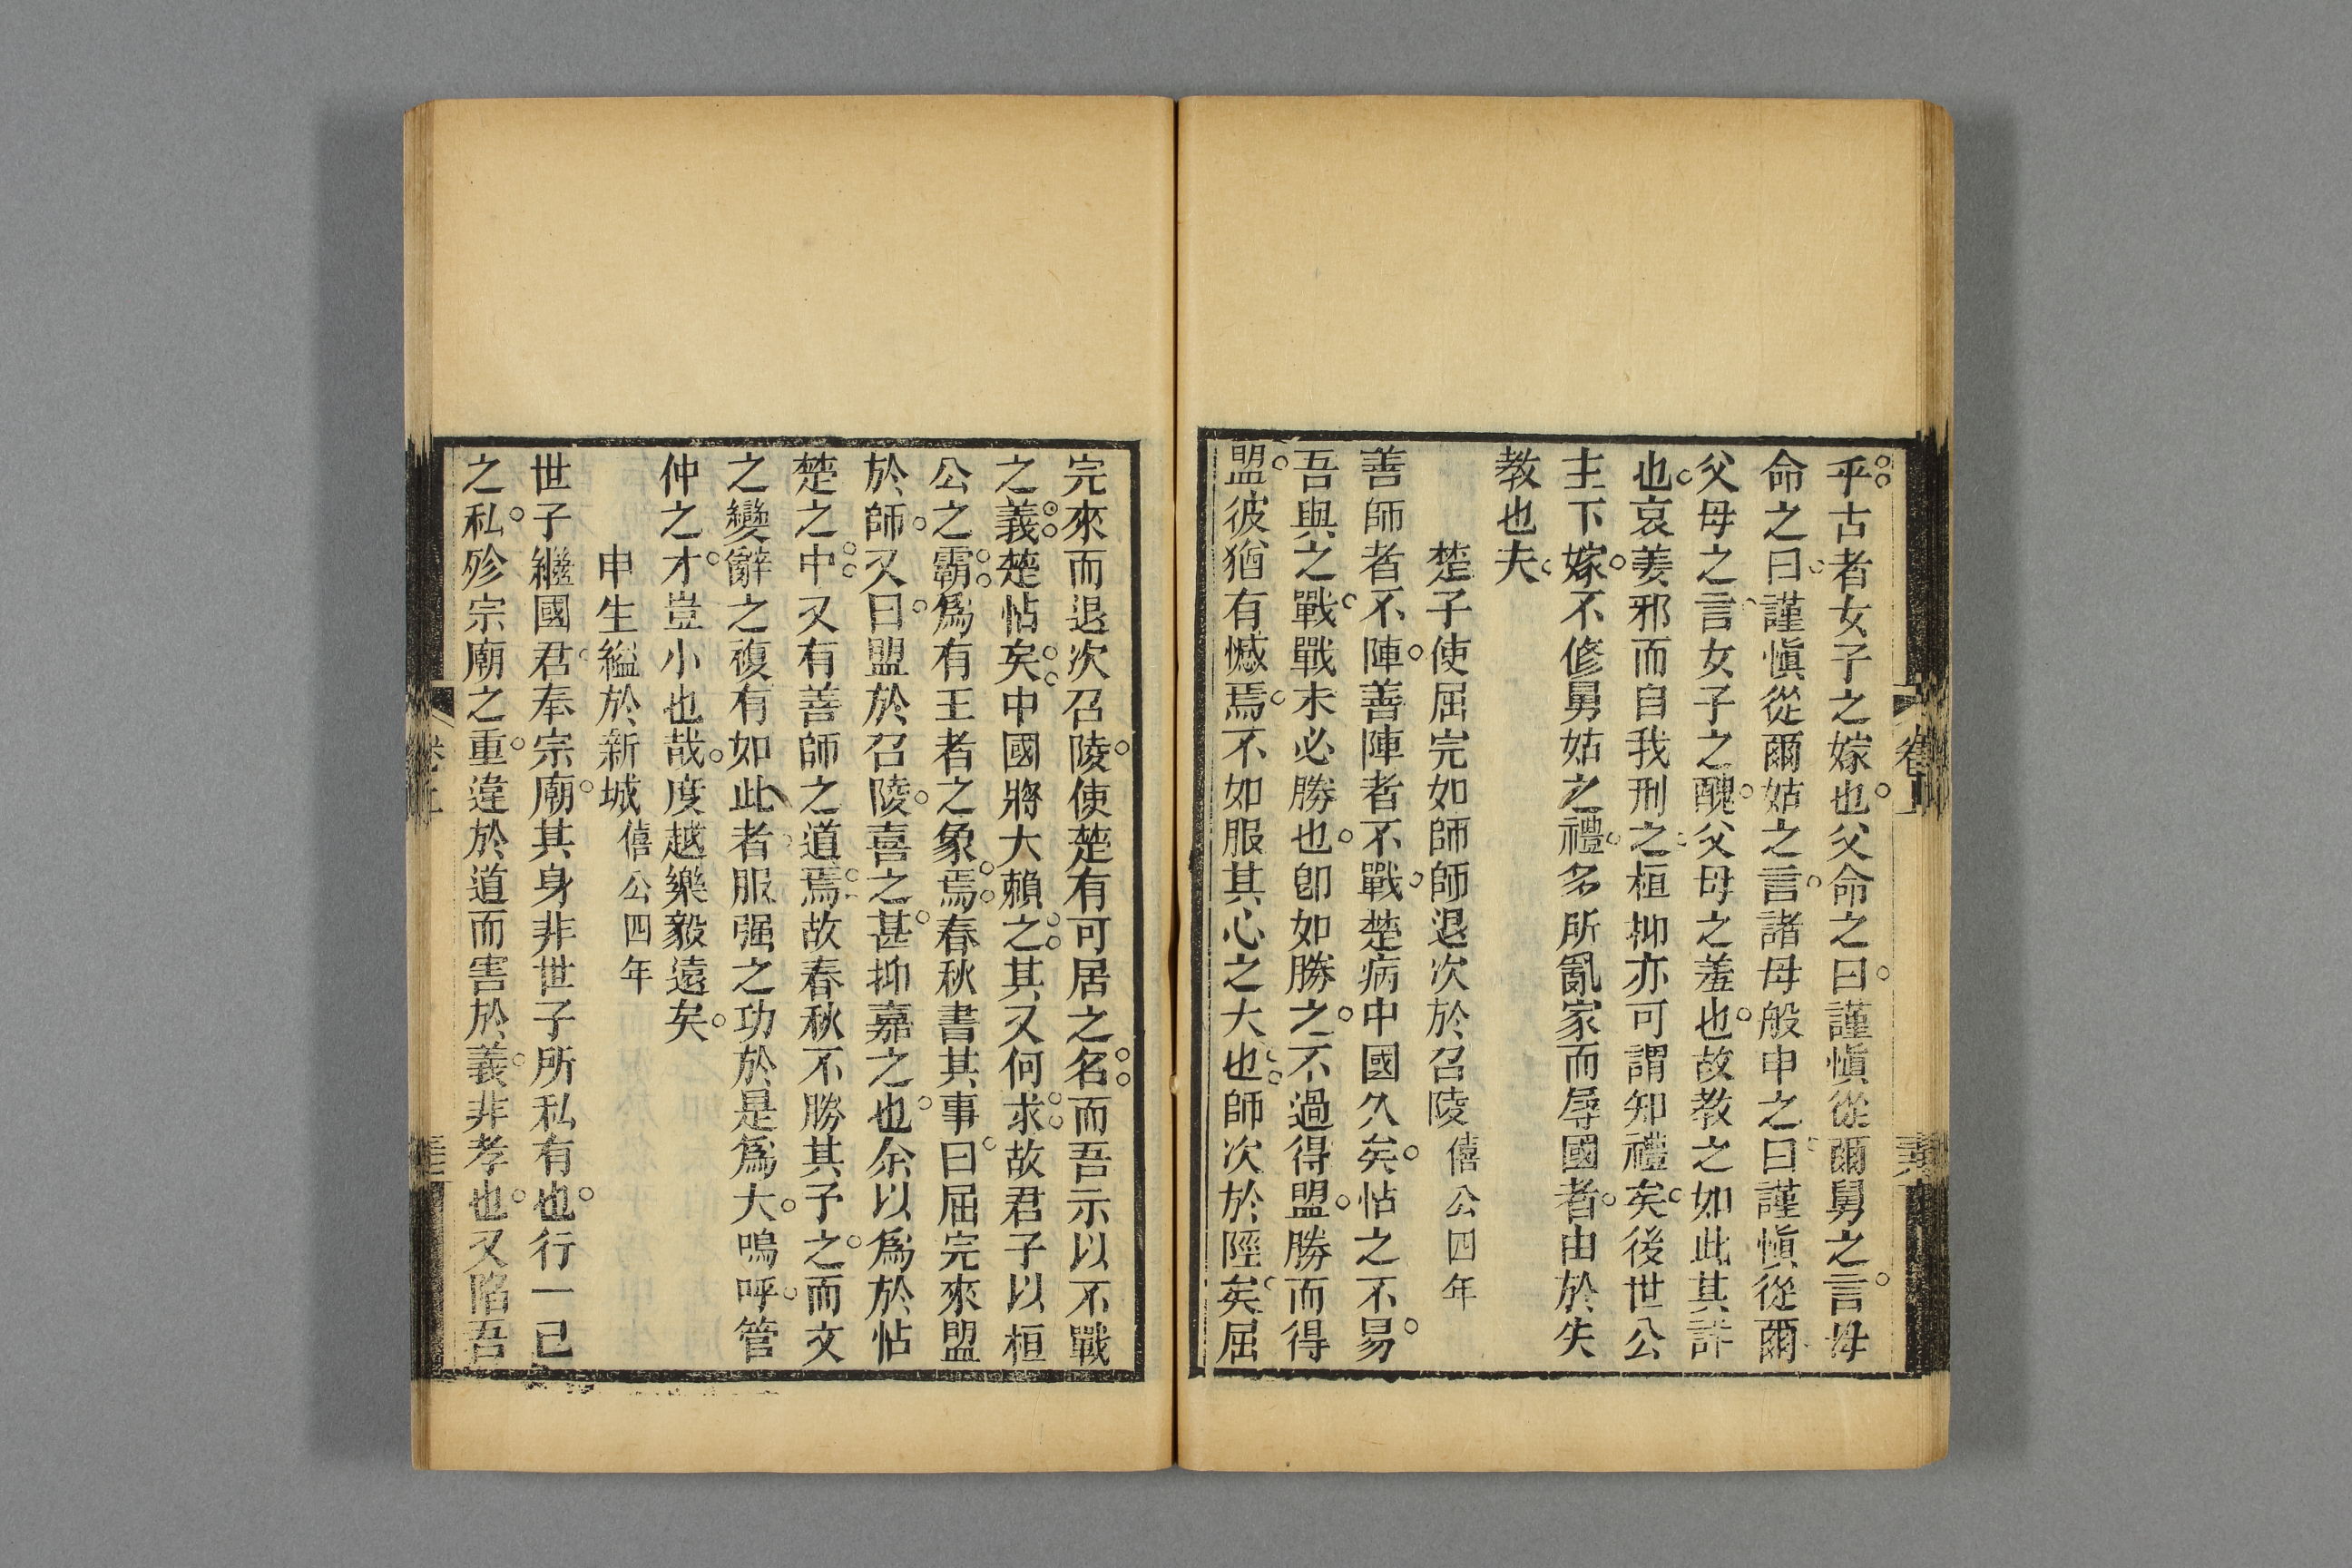 乎古者女子之嫁也父命之曰謹愼從爾舅之言母
命之曰謹愼從爾姑之言諸母般申之曰謹愼從爾
父母之言女子之醜父母之羞也故教之如此其詳
也哀姜邪而自我刑之桓抑亦可謂知禮矣後世公
主下嫁不修舅姑之禮多所亂家而辱國者由於失
教也夫
楚子使屈完如師師退次於召陵僖公四年
善師者不陣善陣者不戰楚病中國久矣怗之不易
吾與之戰戰未必勝也卽如勝之不過得盟勝而得
盟彼猶有憾焉不如服其心之大也師次於陘矣屈
完來而退次召陵使楚有可居之名而吾示以不戰
之義楚怗矣中國將大賴之其又何求故君子以桓
公之霸爲有王者之象焉春秋書其事曰屈完來盟
於師又曰盟於召陵喜之甚抑嘉之也余以爲於怗
楚之中又有善師之道焉故春秋不勝其予之而文
之變辭之複有如此者服强之功於是爲大嗚呼管
仲之才豈小也哉度越樂毅遠矣
申生縊於新城僖公四年
世子繼國君奉宗廟其身非世子所私有也行一己
之私殄宗廟之重違於道而害於義非孝也又陷吾